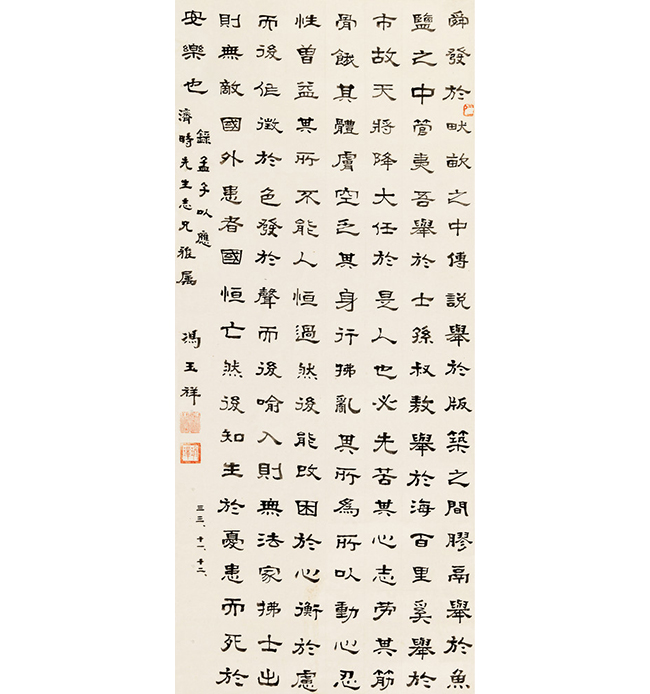 舜發於畎畝之中傅說舉於版築之間膠鬲舉於魚
鹽之中管夷吾舉於士孫叔敖舉於海百里奚舉於
市故天將降大任於是人也必先苦其心志勞其筋
骨餓其體膚空乏其身行拂亂其所為所以動心忍
性曾益其所不能人恒過然後能改困於心衡於慮
而後作徵於色發於聲而後喻入則無法家拂士出
則無敵國外患者國恒亡然後知生於憂患而死於
安樂也
錄孟子以應
濟時先生志兄雅屬
馮玉祥
三三、十一、十二、